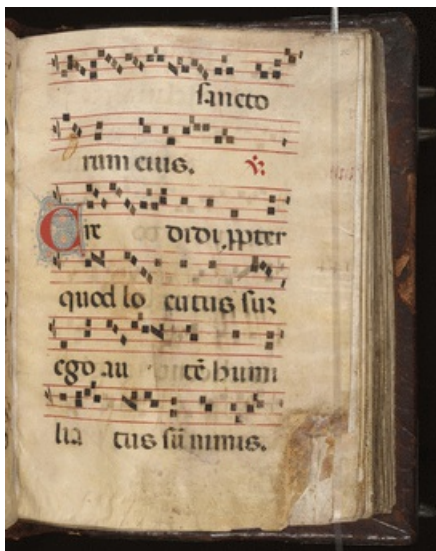 sancto
rum eius. ℣.
Cre didi, ꝓpter
quod lo cutus sum
ego au tē humi
lia tus sū nimis.